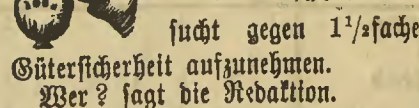 sucht gegen 1 1/2fache
Gütersicherheit aufzunehmen.
Wer? sagt die Redaktion.